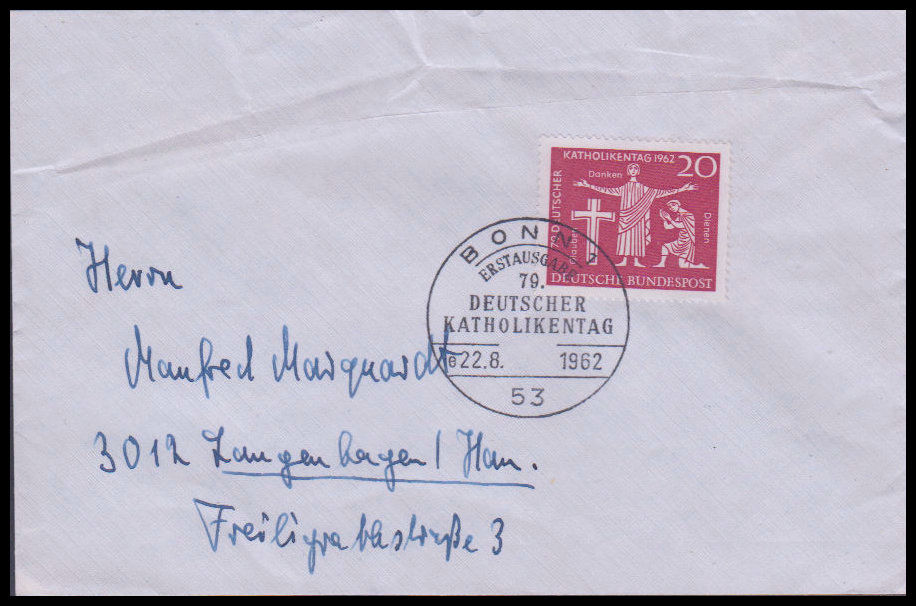 79. DEUTSCHER
KATHOLIKENTAG 1962 20
Danken
Glauben
Dienen
DEUTSCHE BUNDESPOST
BONN 1
ERSTAUSGABE
79.
DEUTSCHER
KATHOLIKENTAG
e 22.8. 1962
53
Herrn
Manfred Marquardt
3012 Langenhagen / Han.
Freiligrathstraße 3